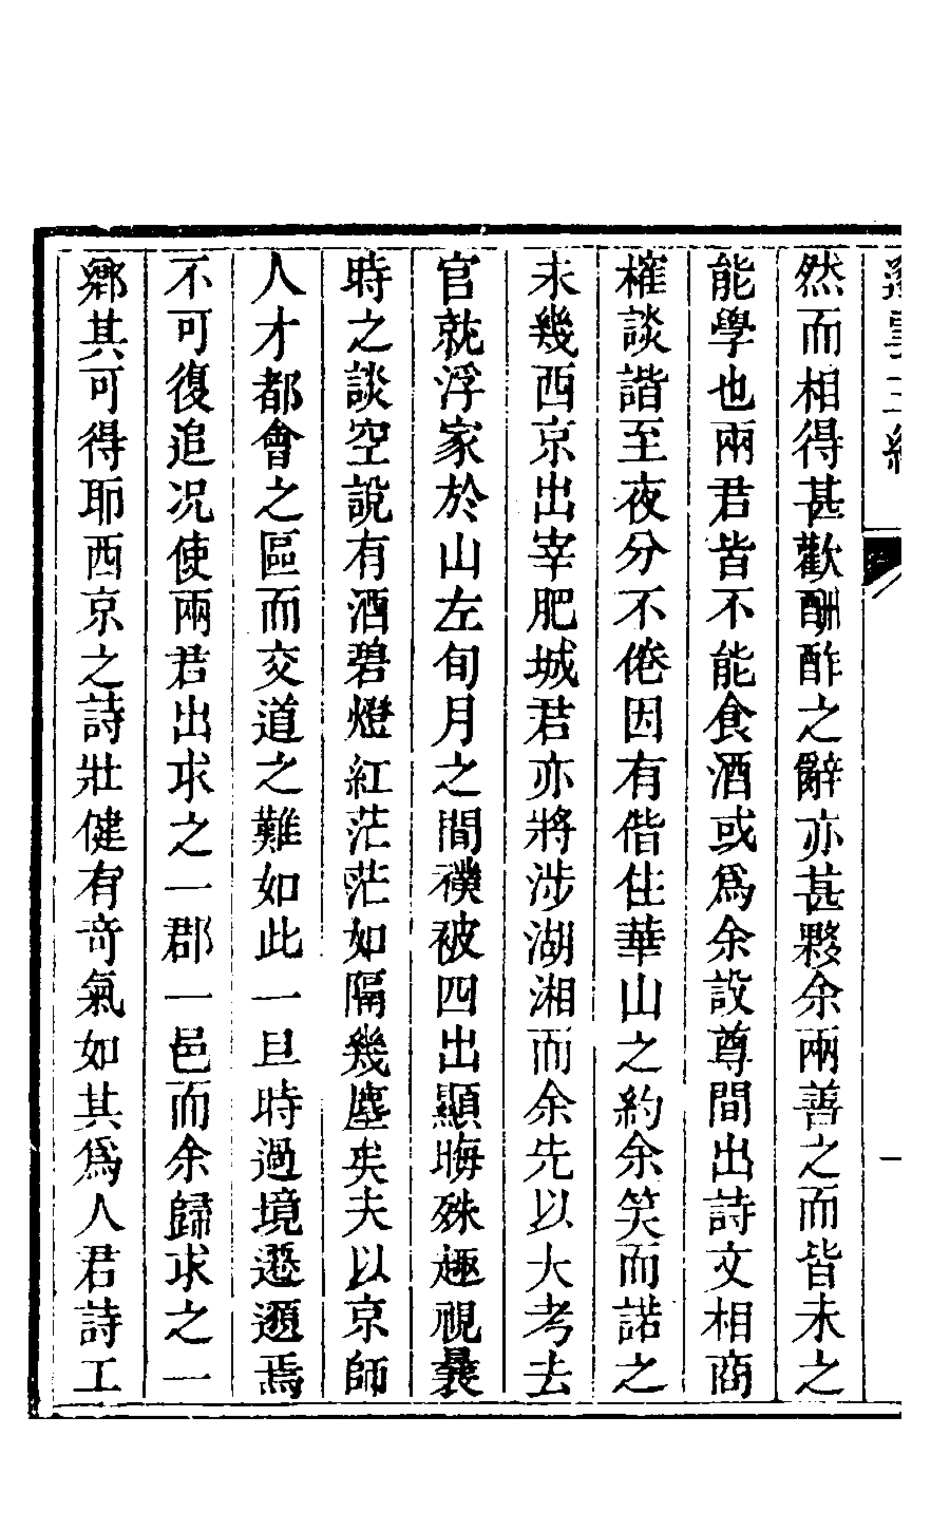 然而相得甚歡酬酢之辭亦甚夥余兩善之而皆未之
能學也兩君皆不能食酒或爲余設尊間出詩文相商
榷談諧至夜分不倦因有偕住華山之約余笑而諾之
未幾西京出宰肥城君亦將涉湖湘而余先以大考去
官就浮家於山左旬月之間襆被四出顯晦殊趣視曩
時之談空說有酒碧燈紅茫茫如隔幾塵矣夫以京師
人才都會之區而交道之難如此一旦時過境遷邈焉
不可復追况使兩君出求之一郡一邑而余歸求之一
鄉其可得耶西京之詩壯健有奇氣如其爲人君詩工
一